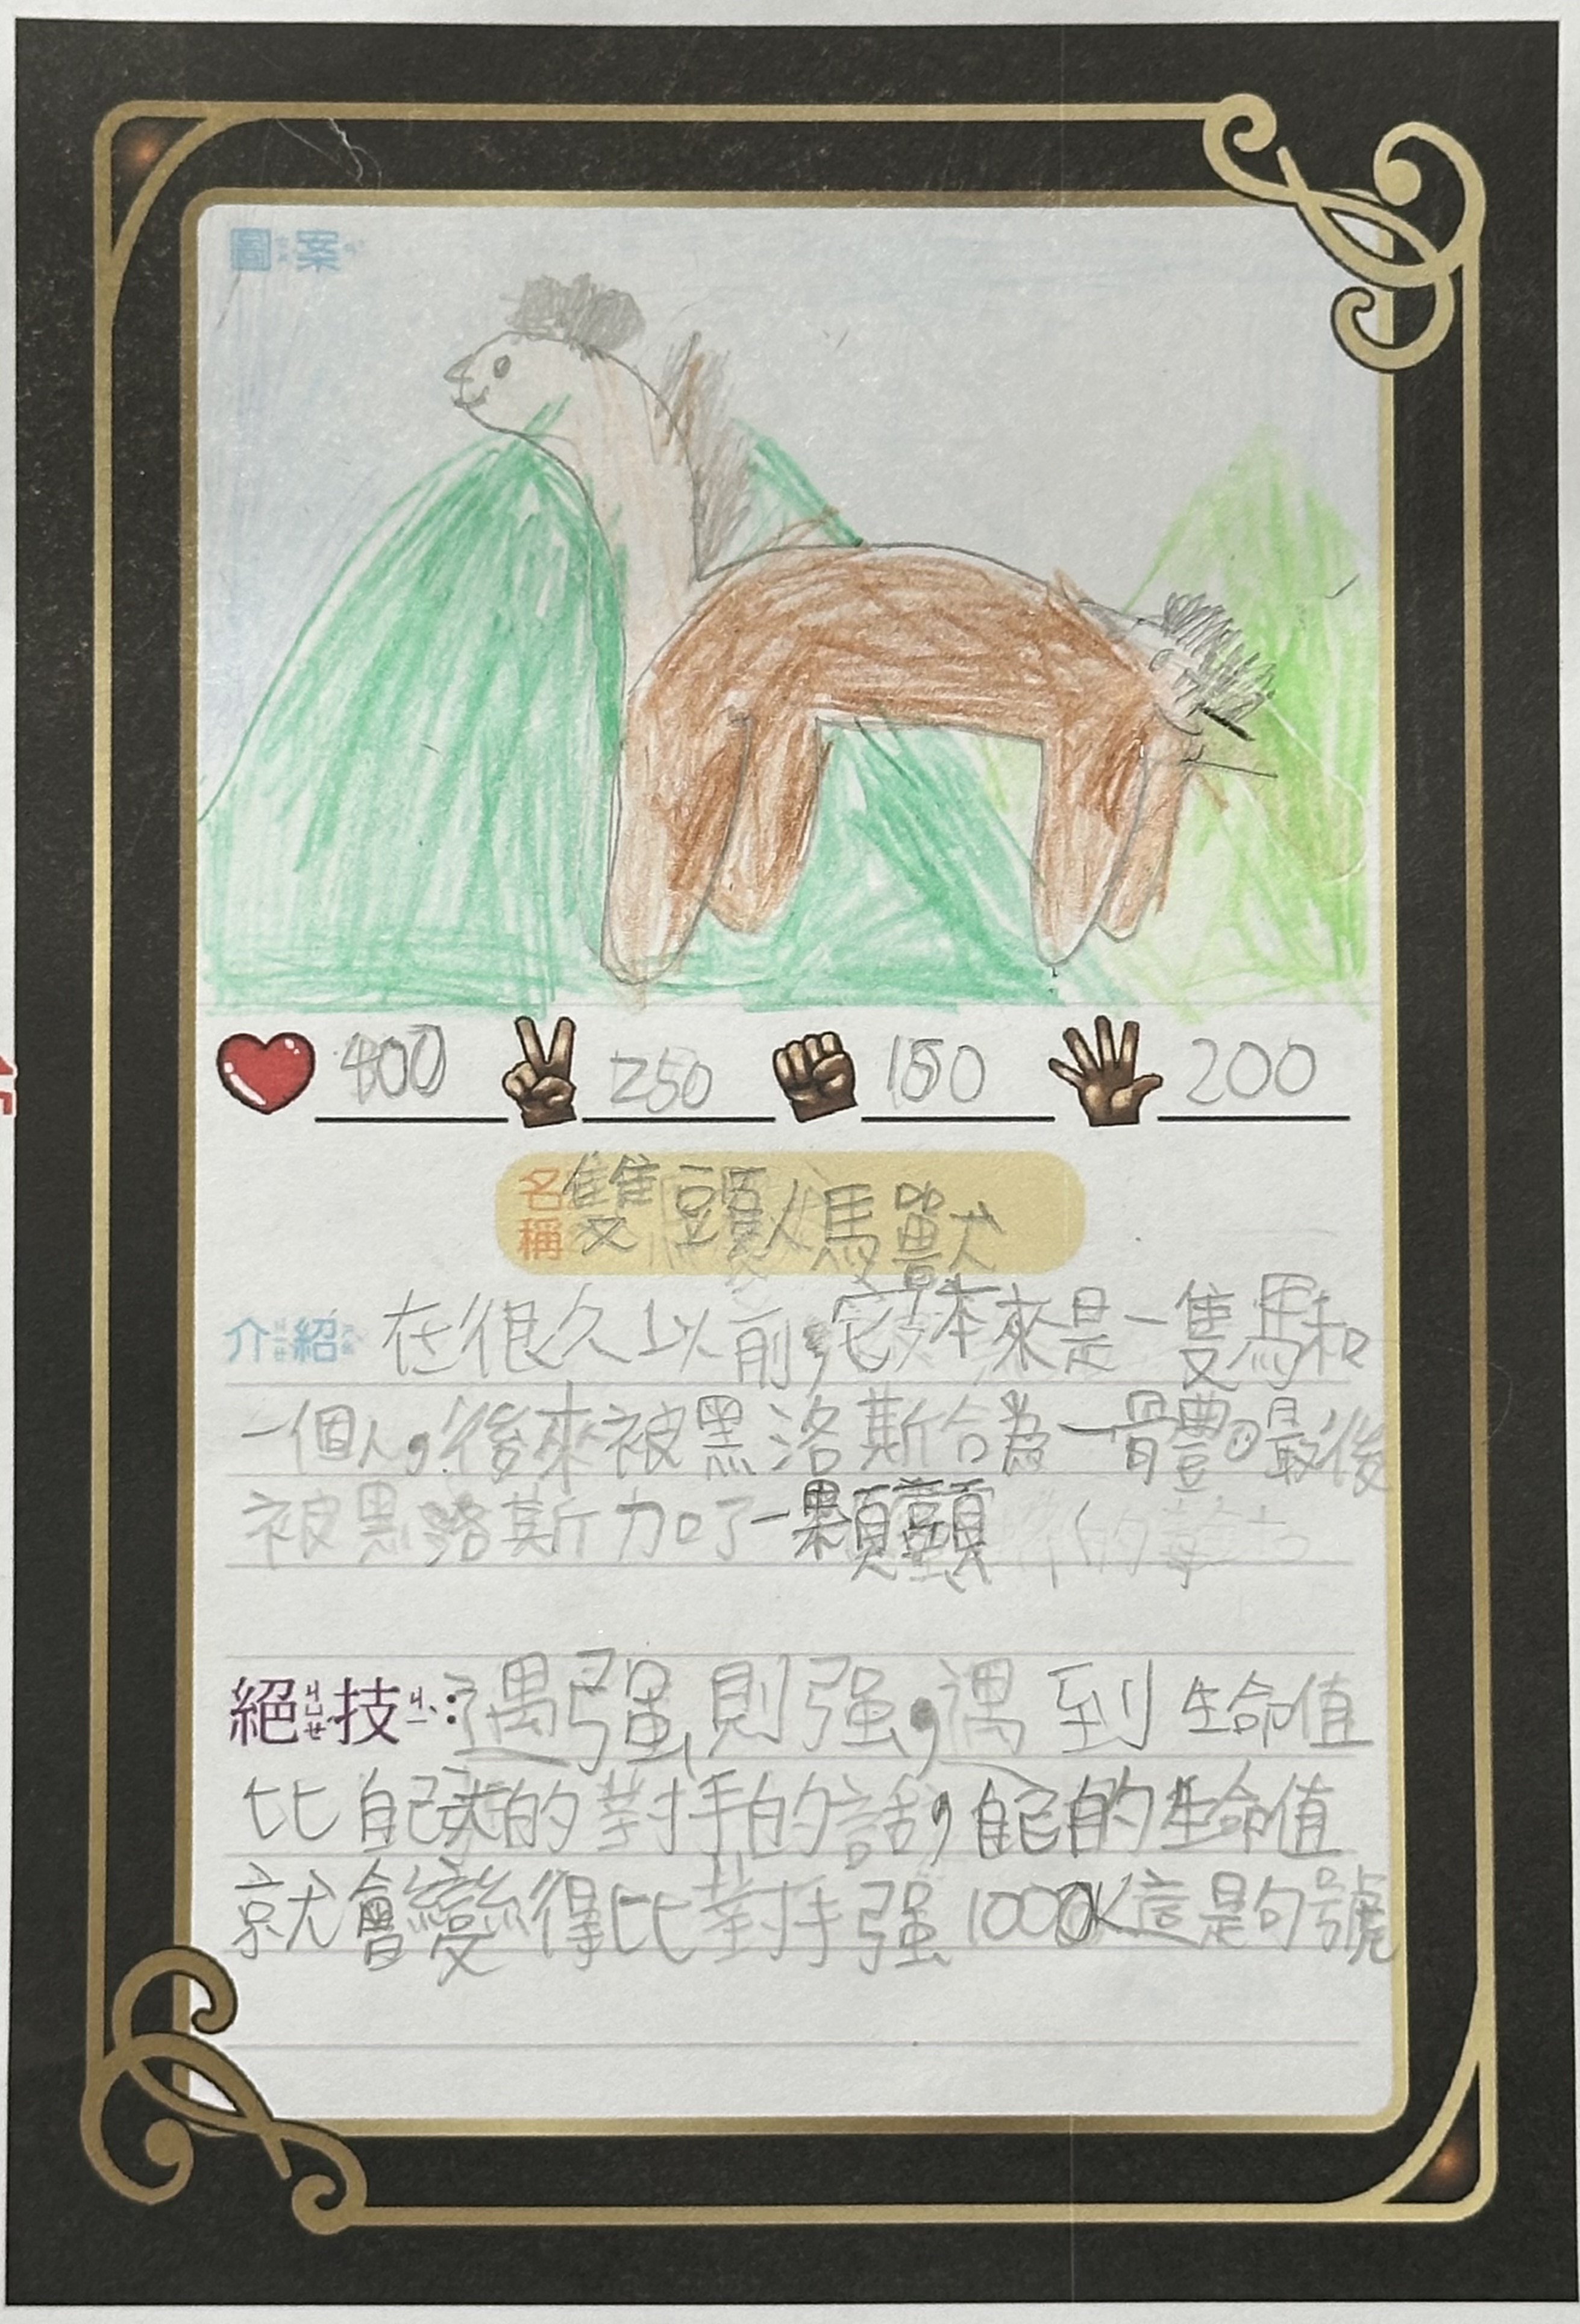 圖案
400 250 150 200
名稱 雙頭人馬獸
介紹 在很久以前,它本來是一隻馬和
一個人,後來被黑洛斯合為一體。最後
被黑洛斯加了一顆頭
絕技:遇强則强,遇到生命值
比自己大的對手的話,自己的生命值
就會變得比對手强1000 這是句號